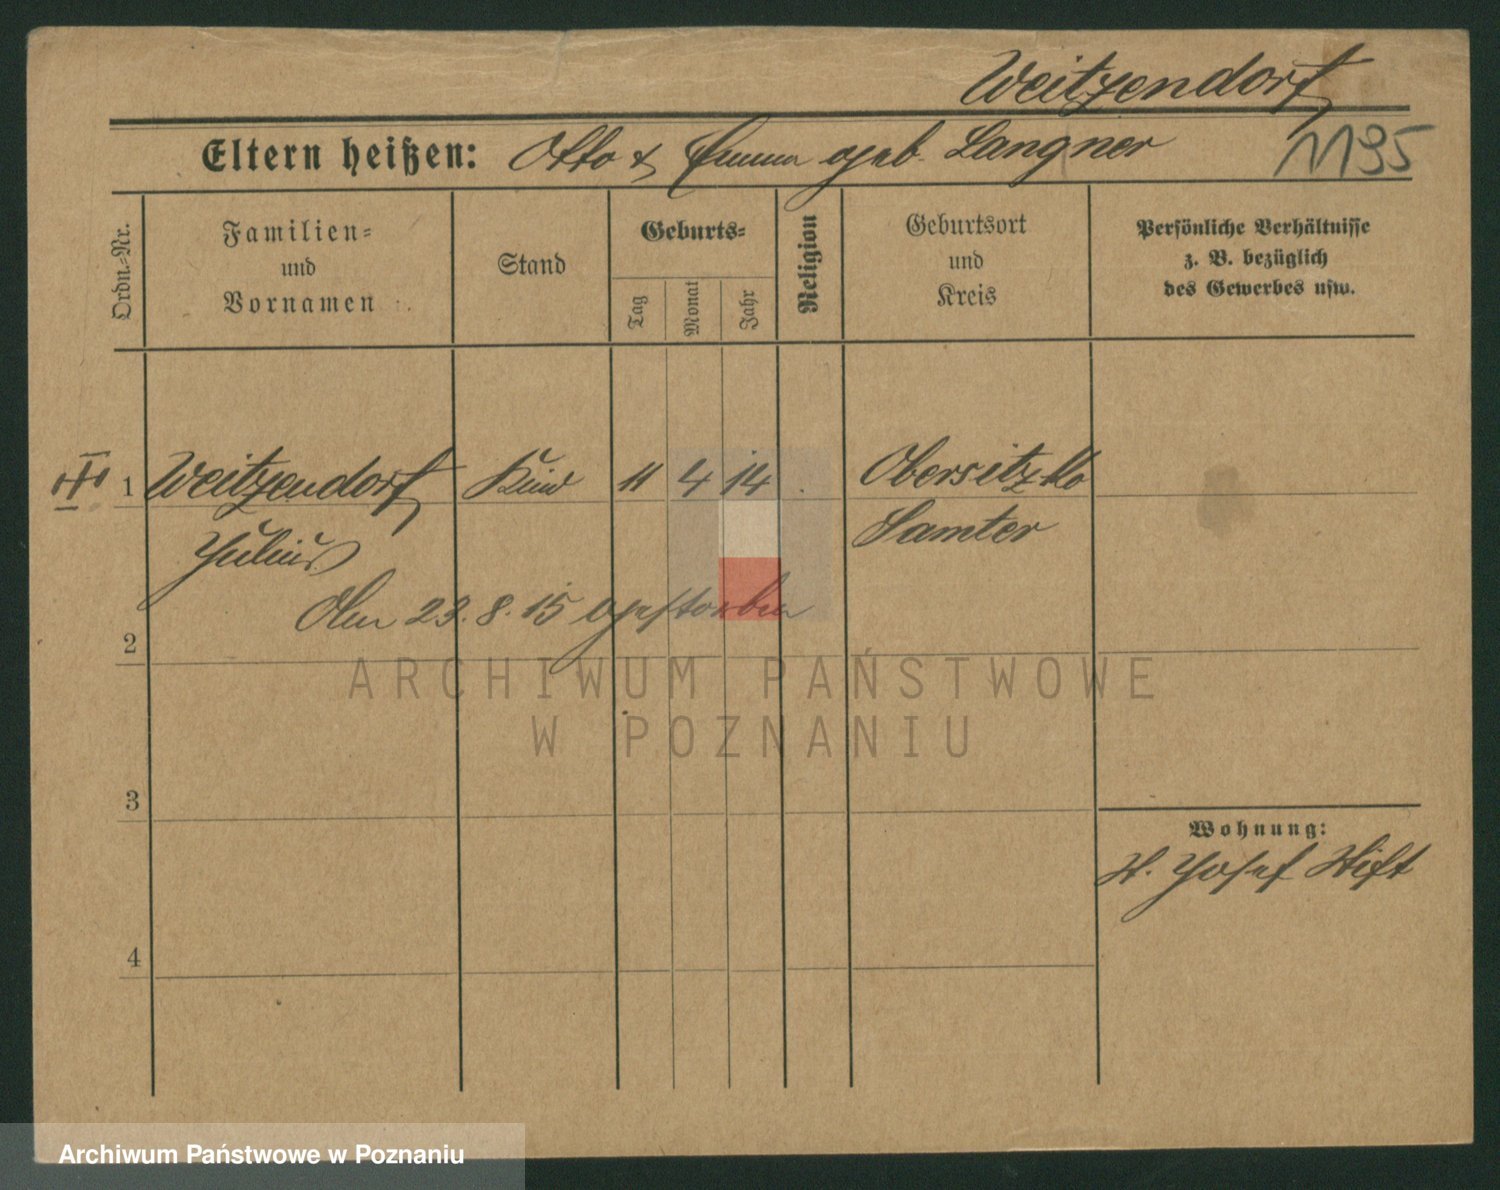 Weitzendorf
Eltern heißen: Otto & Emma geb. Langner
1195
Ordn.-Nr.
Familien-
und
Vornamen
Stand
Geburts-
Tag
Monat
Jahr
Religion
Geburtsort
und
Kreis
Persönliche Verhältnisse
z. B. bezüglich
des Gewerbes usw.
1 Weitzendorf Kind 11 4 14 Obersitzko
Julius Samter
Den 23. 8. 15 gestorben
2
ARCHIWUM PAŃSTWOWE
W POZNANIU
3
Wohnung:
St. Josef Stift
4
Archiwum Państwowe w Poznaniu